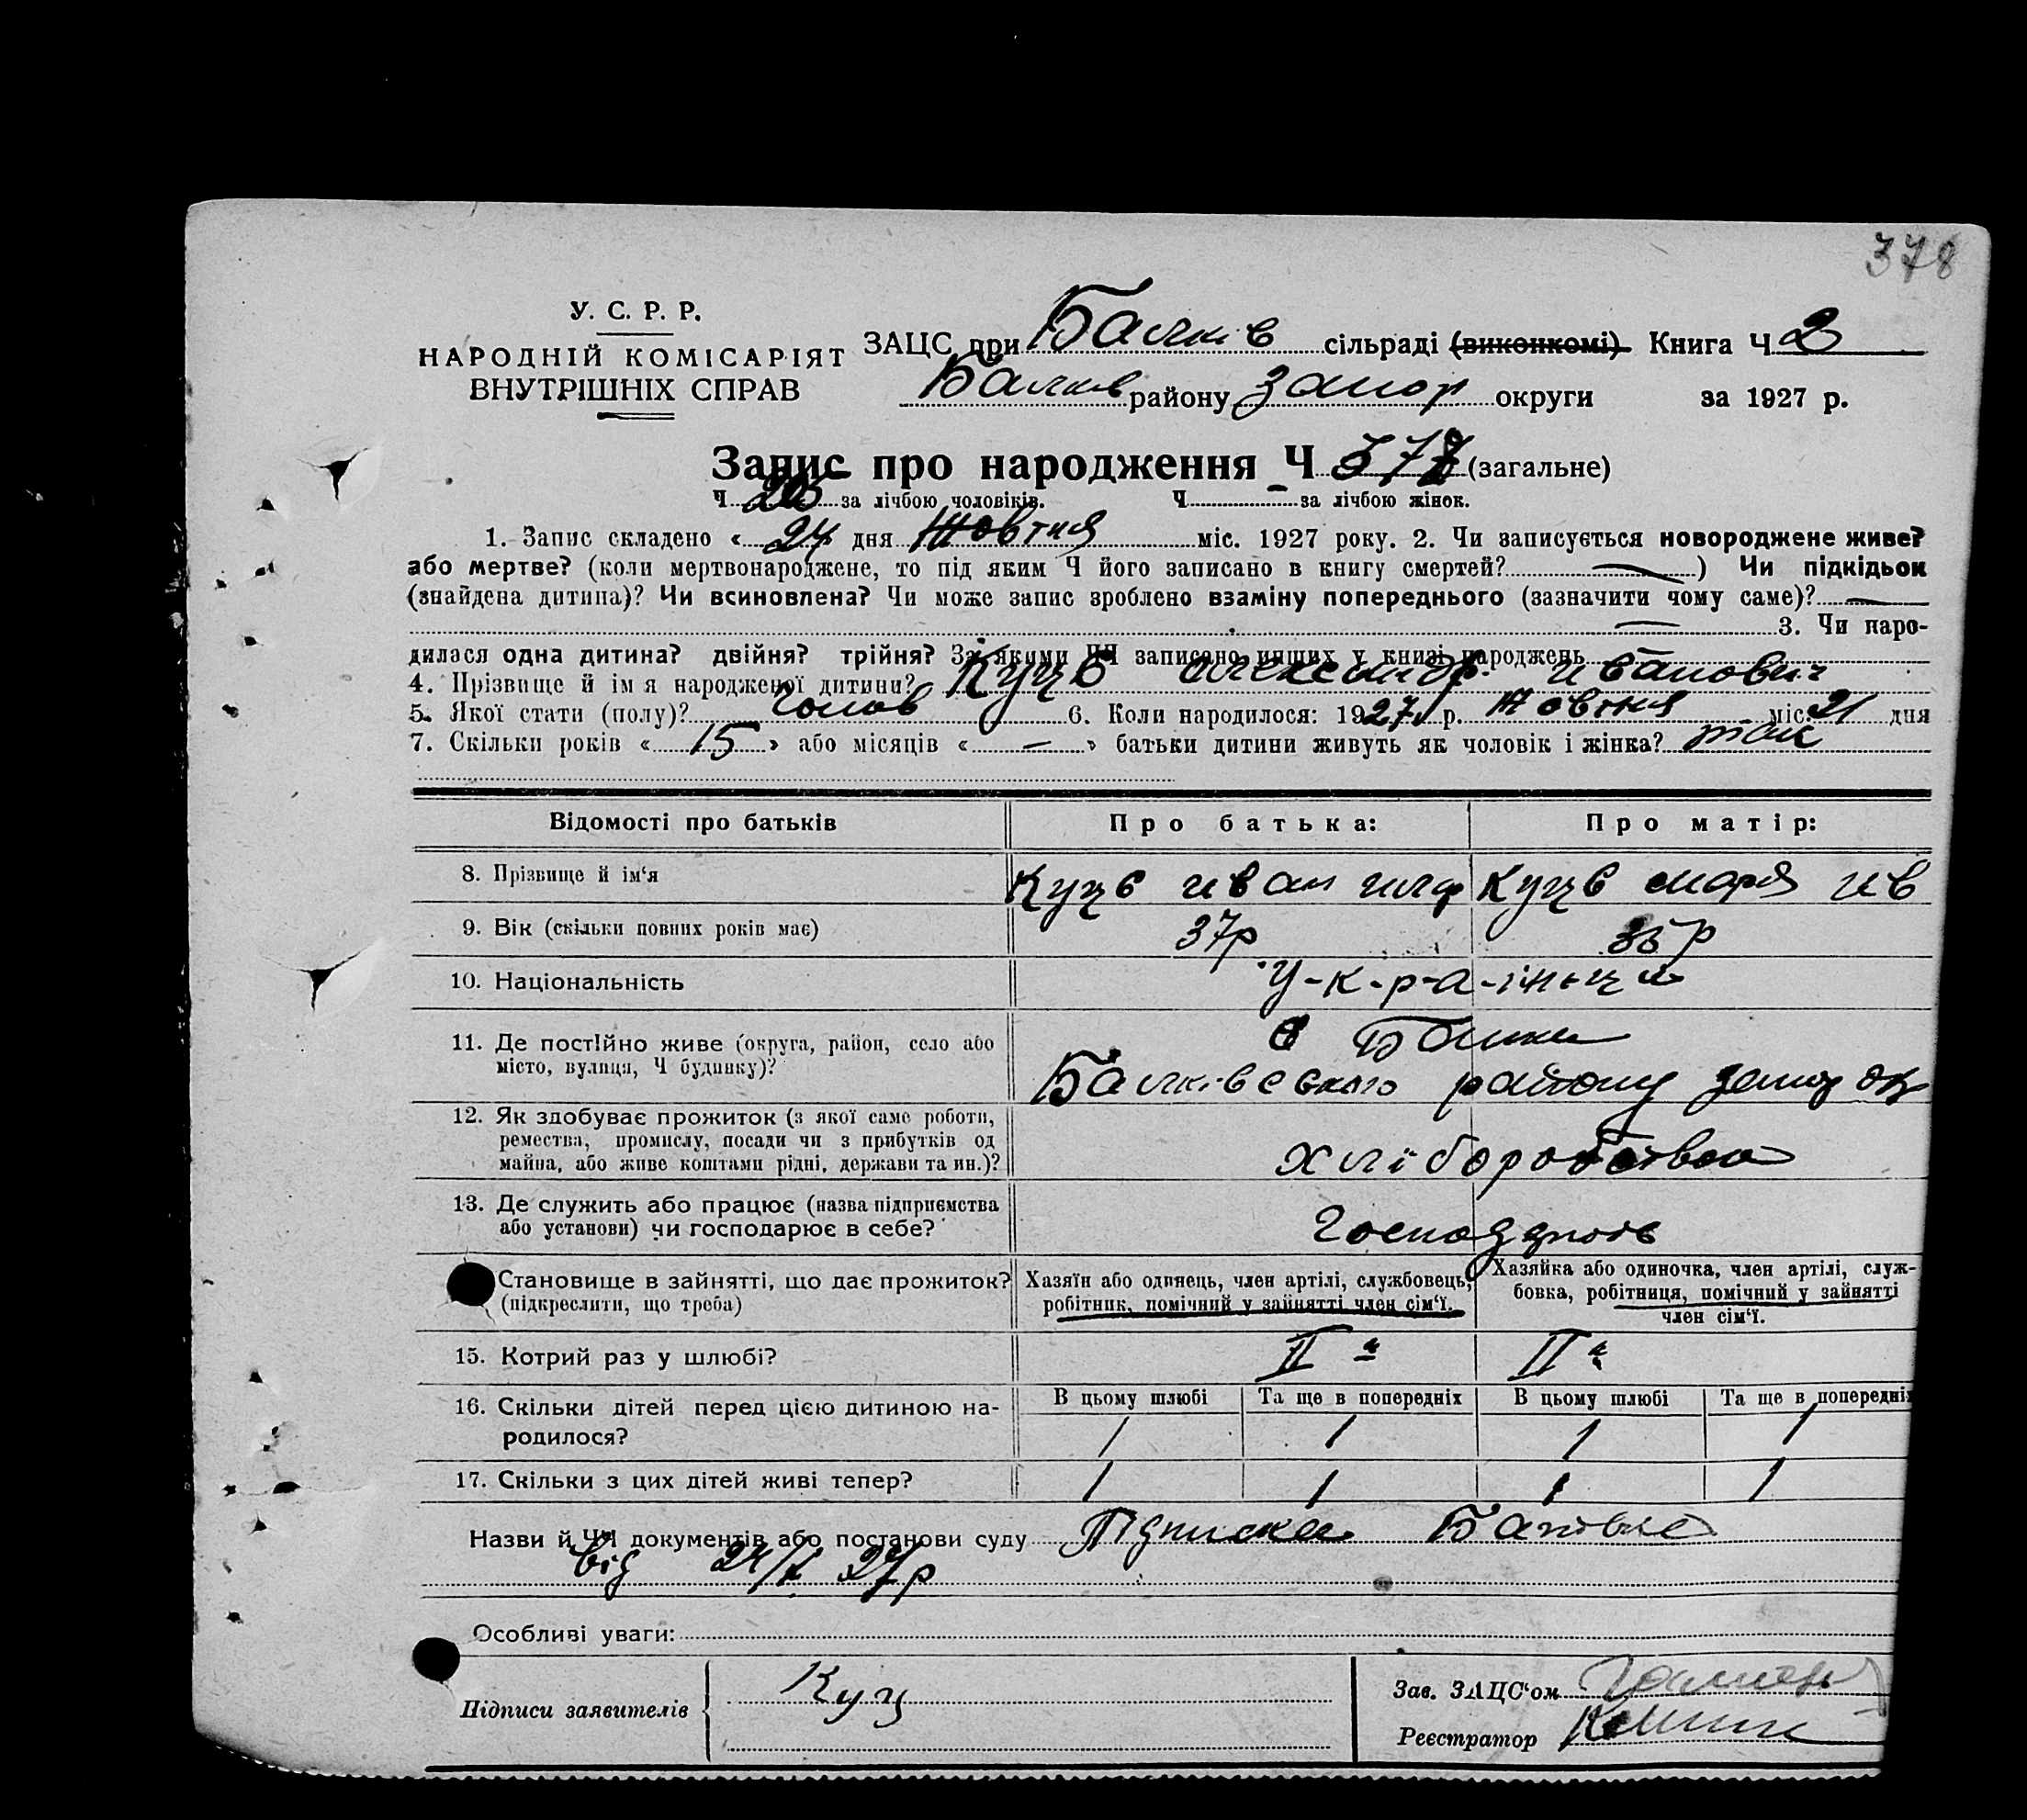 378
У. С. Р. Р.
НАРОДНІЙ КОМІСАРІЯТ
ВНУТРІШНІХ СПРАВ
ЗАЦС при Балків сільраді (виконкомі) Книга Ч 2
Балків району Запор округи за 1927 р.
Запис про народження Ч 378 (загальне)
Ч за лічбою чоловіків. Ч - за лічбою жінок.
1. Запис складено « 24 дня Жовтня міс. 1927 року. 2. Чи записується новороджене живе?
або мертве? (коли мертвонароджене, то під яким Ч його записано в книгу смертей? —) Чи підкідьок
(знайдена дитина)? Чи всиновлена? Чи може запис зроблено взаміну попереднього (зазначити чому саме)? —
— 3. Чи наро-
дилася одна дитина? двійня? трійня? За якими ЧЧ записано инших у книзі народжень
4. Прізвище й ім я народженої дитини? Куць Александр Иванович
5. Якої стати (полу)? Чолов 6. Коли народилося: 1927 р. Жовтня міс. 21 дня
7. Скільки років « 15 » або місяців « — » батьки дитини живуть як чоловік і жінка? так
Відомості про батьків Про батька: Про матір:
8. Прізвище й ім‘я Куць Иван Куць Мария Ив
9. Вік (скільки повних років має) 37р 35р
10. Національність У-к-р-а-їньци
11. Де постійно живе (округа, район, село або
місто, вулиця, Ч будинку)?
с Балки
Балківського району Запор ок
12. Як здобуває прожиток (з якої саме роботи,
ремества, промислу, посади чи з прибутків од
майна, або живе коштами рідні, держави та ин.)?
хліборобство
13. Де служить або працює (назва підприємства
або установи) чи господарює в себе?
Становище в зайнятті, що дає прожиток?
(підкреслити, що треба)
Хазяїн або одинець, член артілі, службовець,
робітник, помічний у зайнятті член сім‘ї.
Хазяйка або одиночка, член артілі, служ-
бовка, робітниця, помічний у зайнятті
член сім‘ї.
15. Котрий раз у шлюбі? II й II й
16. Скільки дітей перед цією дитиною на-
родилося?
В цьому шлюбі Та ще в попередніх В цьому шлюбі Та ще в попередніх
1 1 1 1
17. Скільки з цих дітей живі тепер? 1 1 1 1
Назви й ЧЧ документів або постанови суду Підписка Батька
від 24/X 27р
Особливі уваги:
Підписи заявителів Куц
Зав. ЗАЦС‘ом
Реєстратор